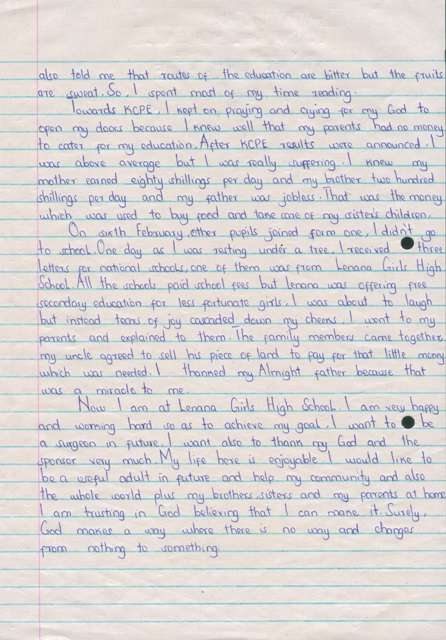 also told me that routes of the education are bitter but the fruits
are sweat. So, I spent most of my time reading.
Towards KCPE, I kept on praying and crying for my God to
open my doors because I knew well that my parents had no money
to cater for my education. After KCPE results were announced. I
was above average but I was really suffering. I knew my
mother earned eighty shillings per day and my brother two hundred
shillings per day and my father was jobless. That was the money
which was used to buy food and take care of my sister's children.
On sixth February, other pupils joined form one, I didn't go
to school. One day as I was resting under a tree, I received three
letters for national schools, one of them was from Lenana Girls High
School. All the schools paid school fees but Lenana was offering free
secondary education for less fortunate girls. I was about to laugh
but instead tears of joy cascaded down my cheeks. I went to my
parents and explained to them. The family members came together,
my uncle agreed to sell his piece of land to pay for that little money
which was needed. I thanked my Almight father because that
was a miracle to me.
Now I am at Lenana Girls High School. I am very happy
and working hard so as to achieve my goal. I want to be
a surgeon in future. I want also to thank my God and the
sponsor very much. My life here is enjoyable. I would like to
be a useful adult in future and help my community and also
the whole world plus my brothers, sisters and my parents at home.
I am trusting in God believing that I can make it. Surely,
God makes a way where there is no way and changes
from nothing to something.